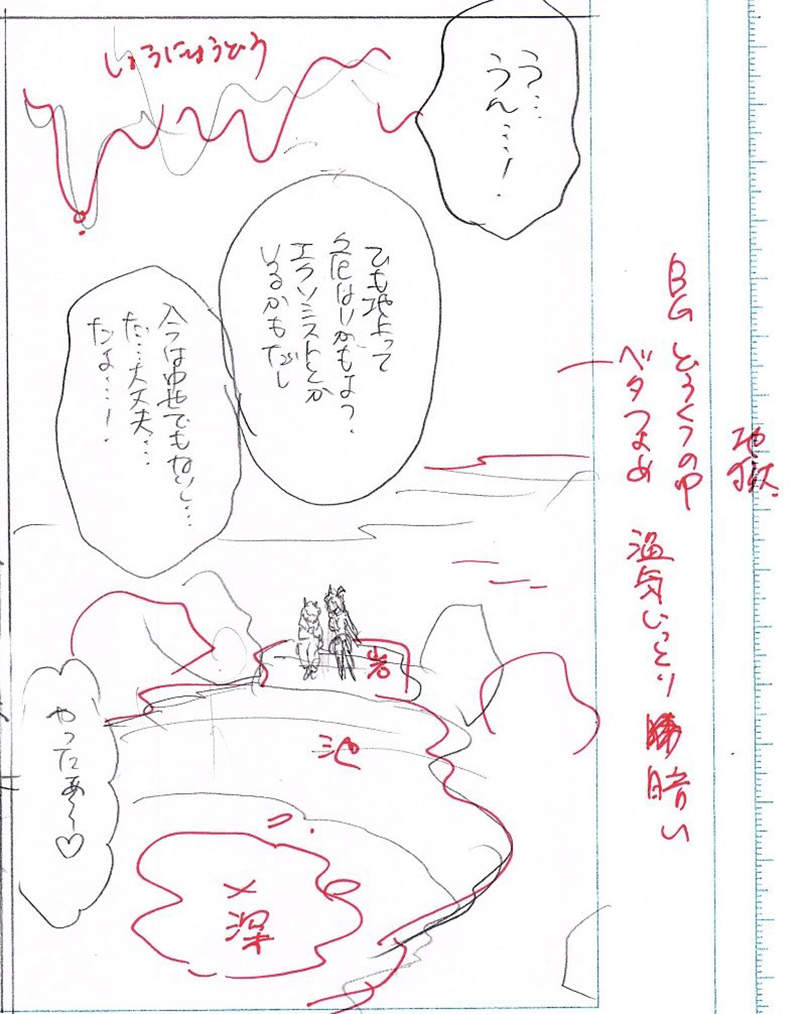 う…
うん…！
でも地上って
今危ないかもよっ。
エクソシストとか
いるかもだし
今は中世でもないし…
だ…大丈夫…
だよ…！
やったあ〜♡
しょうにゅうどう
地獄
BG どうくつの中
ベタつよめ
湿気しっとり 暗い
岩
池